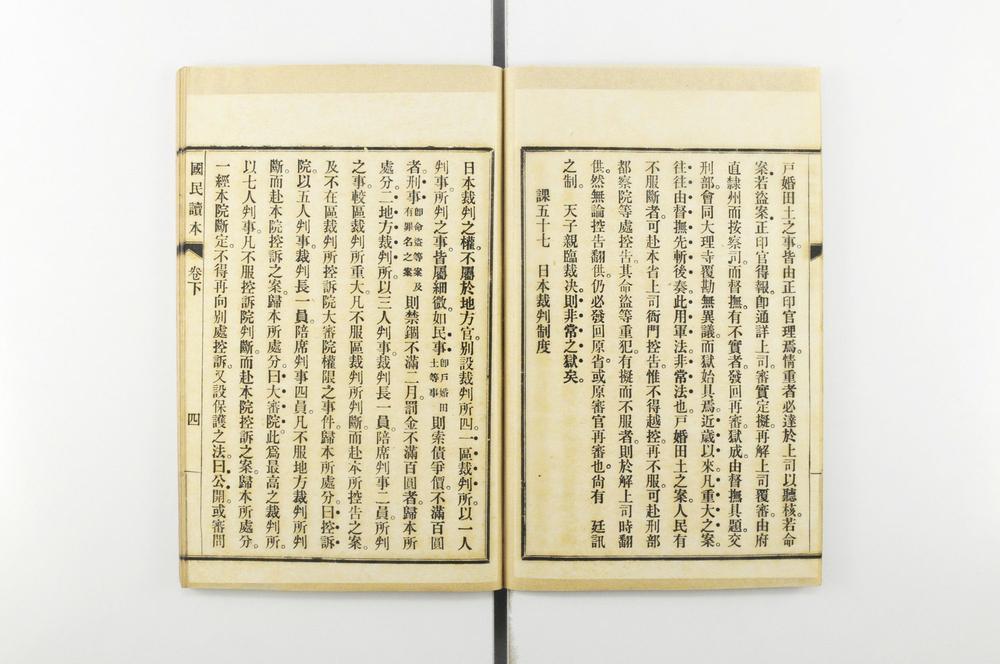 戸婚田土之事。皆由正印官理焉。情重者必達於上司以聽核。若命
案若盜案。正印官得報。卽通詳上司。審實定擬。再解上司覆審。由府
直隸州而按察司。而督撫。有不實者。發回再審。獄成。由督撫具題。交
刑部會同大理寺覆勘無異議。而獄始具焉。近歲以來。凡重大之案。
往往由督撫先斬後奏。此用軍法。非常法也。戸婚田土之案。人民有
不服斷者。可赴本省上司衙門控告。惟不得越控。再不服。可赴刑部
都察院等處控告。其命盜等重犯。有擬而不服者。則於解上司時翻
供。然無論控告翻供。仍必發回原省。或原審官再審也。尙有　廷訊
之制　天子親臨裁決。則非常之獄矣。
課五十七　日本裁判制度
日本裁判之權。不屬於地方官。別設裁判所四。一區裁判所。以一人
判事。所判之事。皆屬細微。如民事卽戸婚田土等事則索債爭價。不滿百圓
者。刑事卽命盜等案及有罪名之案則禁錮不滿二月。罰金不滿百圓者。歸本所
處分。二地方裁判所。以三人判事。裁判長一員。陪席判事二員。所判
之事。較區裁判所重大。凡不服區裁判所判斷。而赴本所控告之案。
及不在區裁判所控訴院大審院權限之事件。歸本所處分。曰控訴
院。以五人判事。裁判長一員。陪席判事四員。凡不服地方裁判所判
斷。而赴本院控訴之案。歸本所處分。曰大審院。此爲最高之裁判所。
以七人判事。凡不服控訴院判斷。而赴本院控訴之案。歸本所處分。
一經本院斷定。不得再向別處控訴。又設保護之法。曰公開。或審問
國民讀本
卷下
四